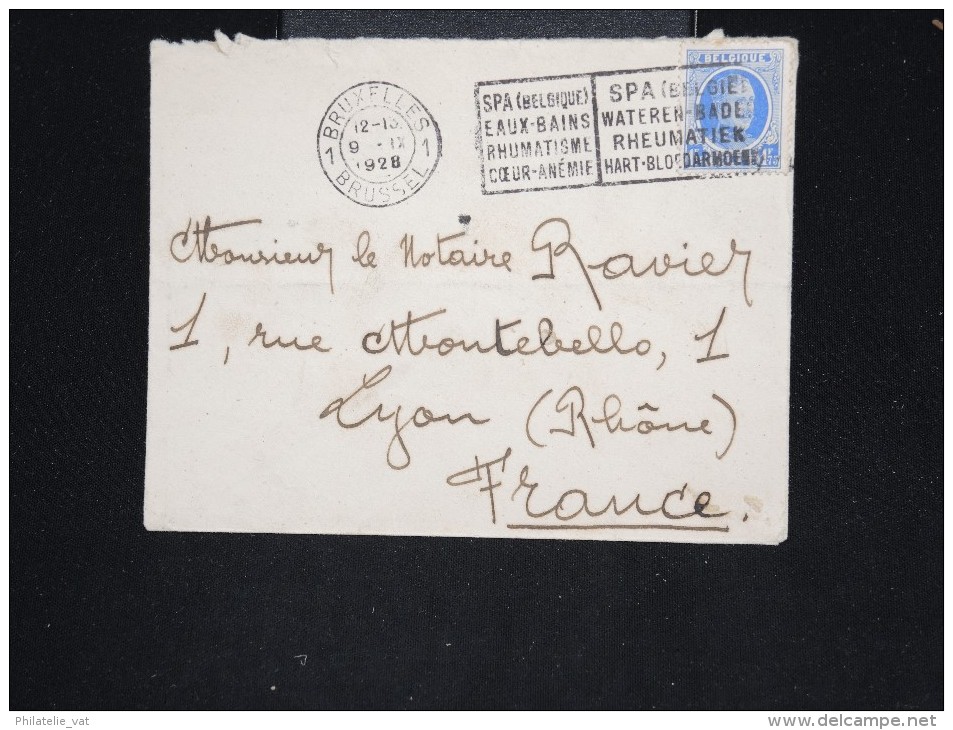 BRUXELLES
12-13
9 - IX
1928
1 1
BRUSSEL
SPA (BELGIQUE)
EAUX-BAINS
RHUMATISME
CŒUR-ANÉMIE
SPA (BELGIE)
WATEREN-BADEN
RHEUMATIEK
HART-BLOEDARMOEDE
BELGIQUE
Monsieur le Notaire Ravier
1, rue Montebello, 1
Lyon (Rhône)
France.
Philatelie_vat
www.delcampe.net